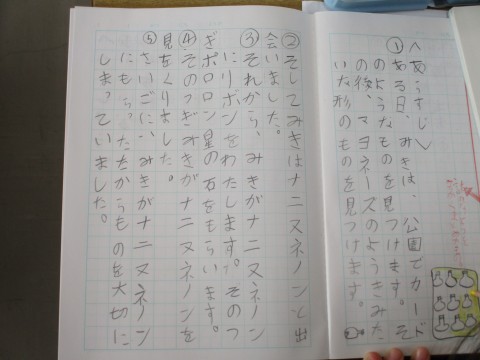 〈あらすじ〉
①ある日、みきは、公園でカード
のようなものを見つけます。そ
の後、マヨネーズのようきみた
いな形のものを見つけます。
②そしてみきはナニヌネノンと出
会いました。
③それから、みきがナニヌネノン
にリボンをわたします。そのつ
ぎポロロン星の石をもらいます。
④そのつぎみきがナニヌネノンを
見おくりました。
⑤さいごに、みきがナニヌネノン
にもらったたからものを大切に
しまっていました。